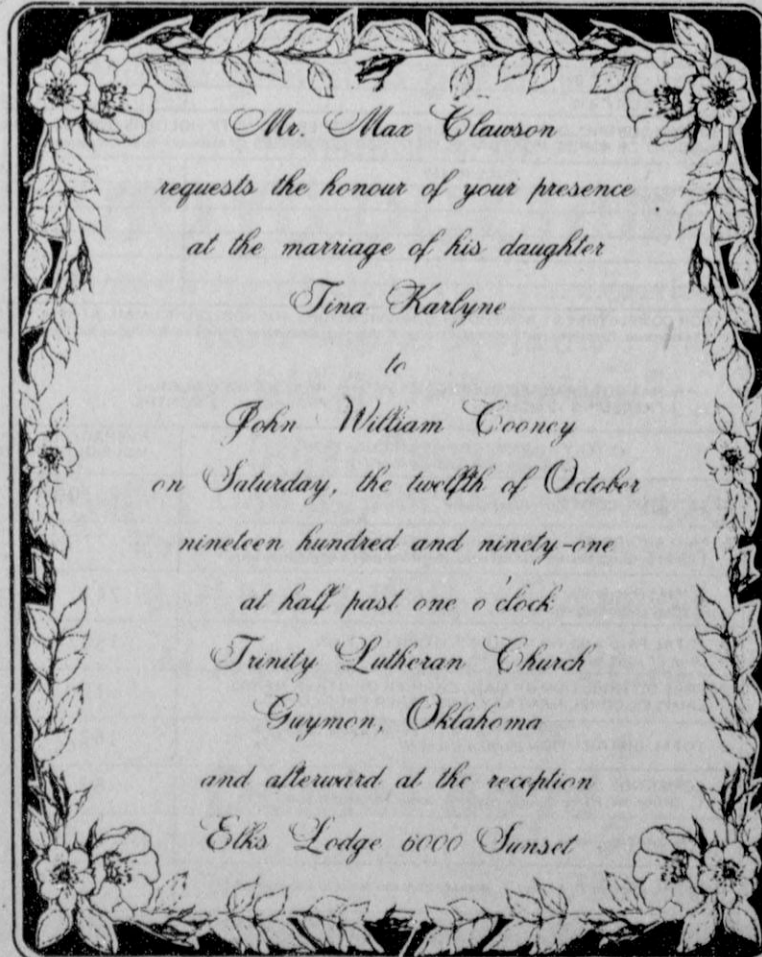 Mr. Max Clawson
requests the honour of your presence
at the marriage of his daughter
Tina Karlyne
to
John William Cooney
on Saturday, the twelfth of October
nineteen hundred and ninety-one
at half past one o'clock
Trinity Lutheran Church
Guymon, Oklahoma
and afterward at the reception
Elks Lodge 6000 Sunset